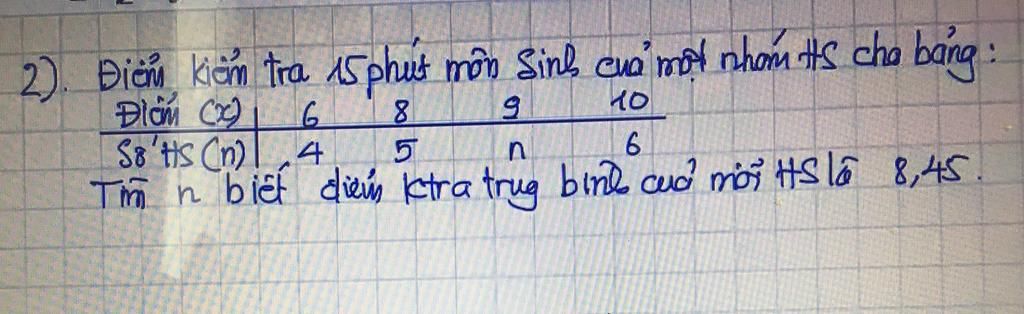 2). Điểm kiểm tra 15 phút môn Sinh của một nhóm HS cho bảng:
Điểm (x) 6 8 9 10
Số HS (n) 4 5 n 6
Tìm n biết điểm ktra trug bình của mỗi HS là 8,45.